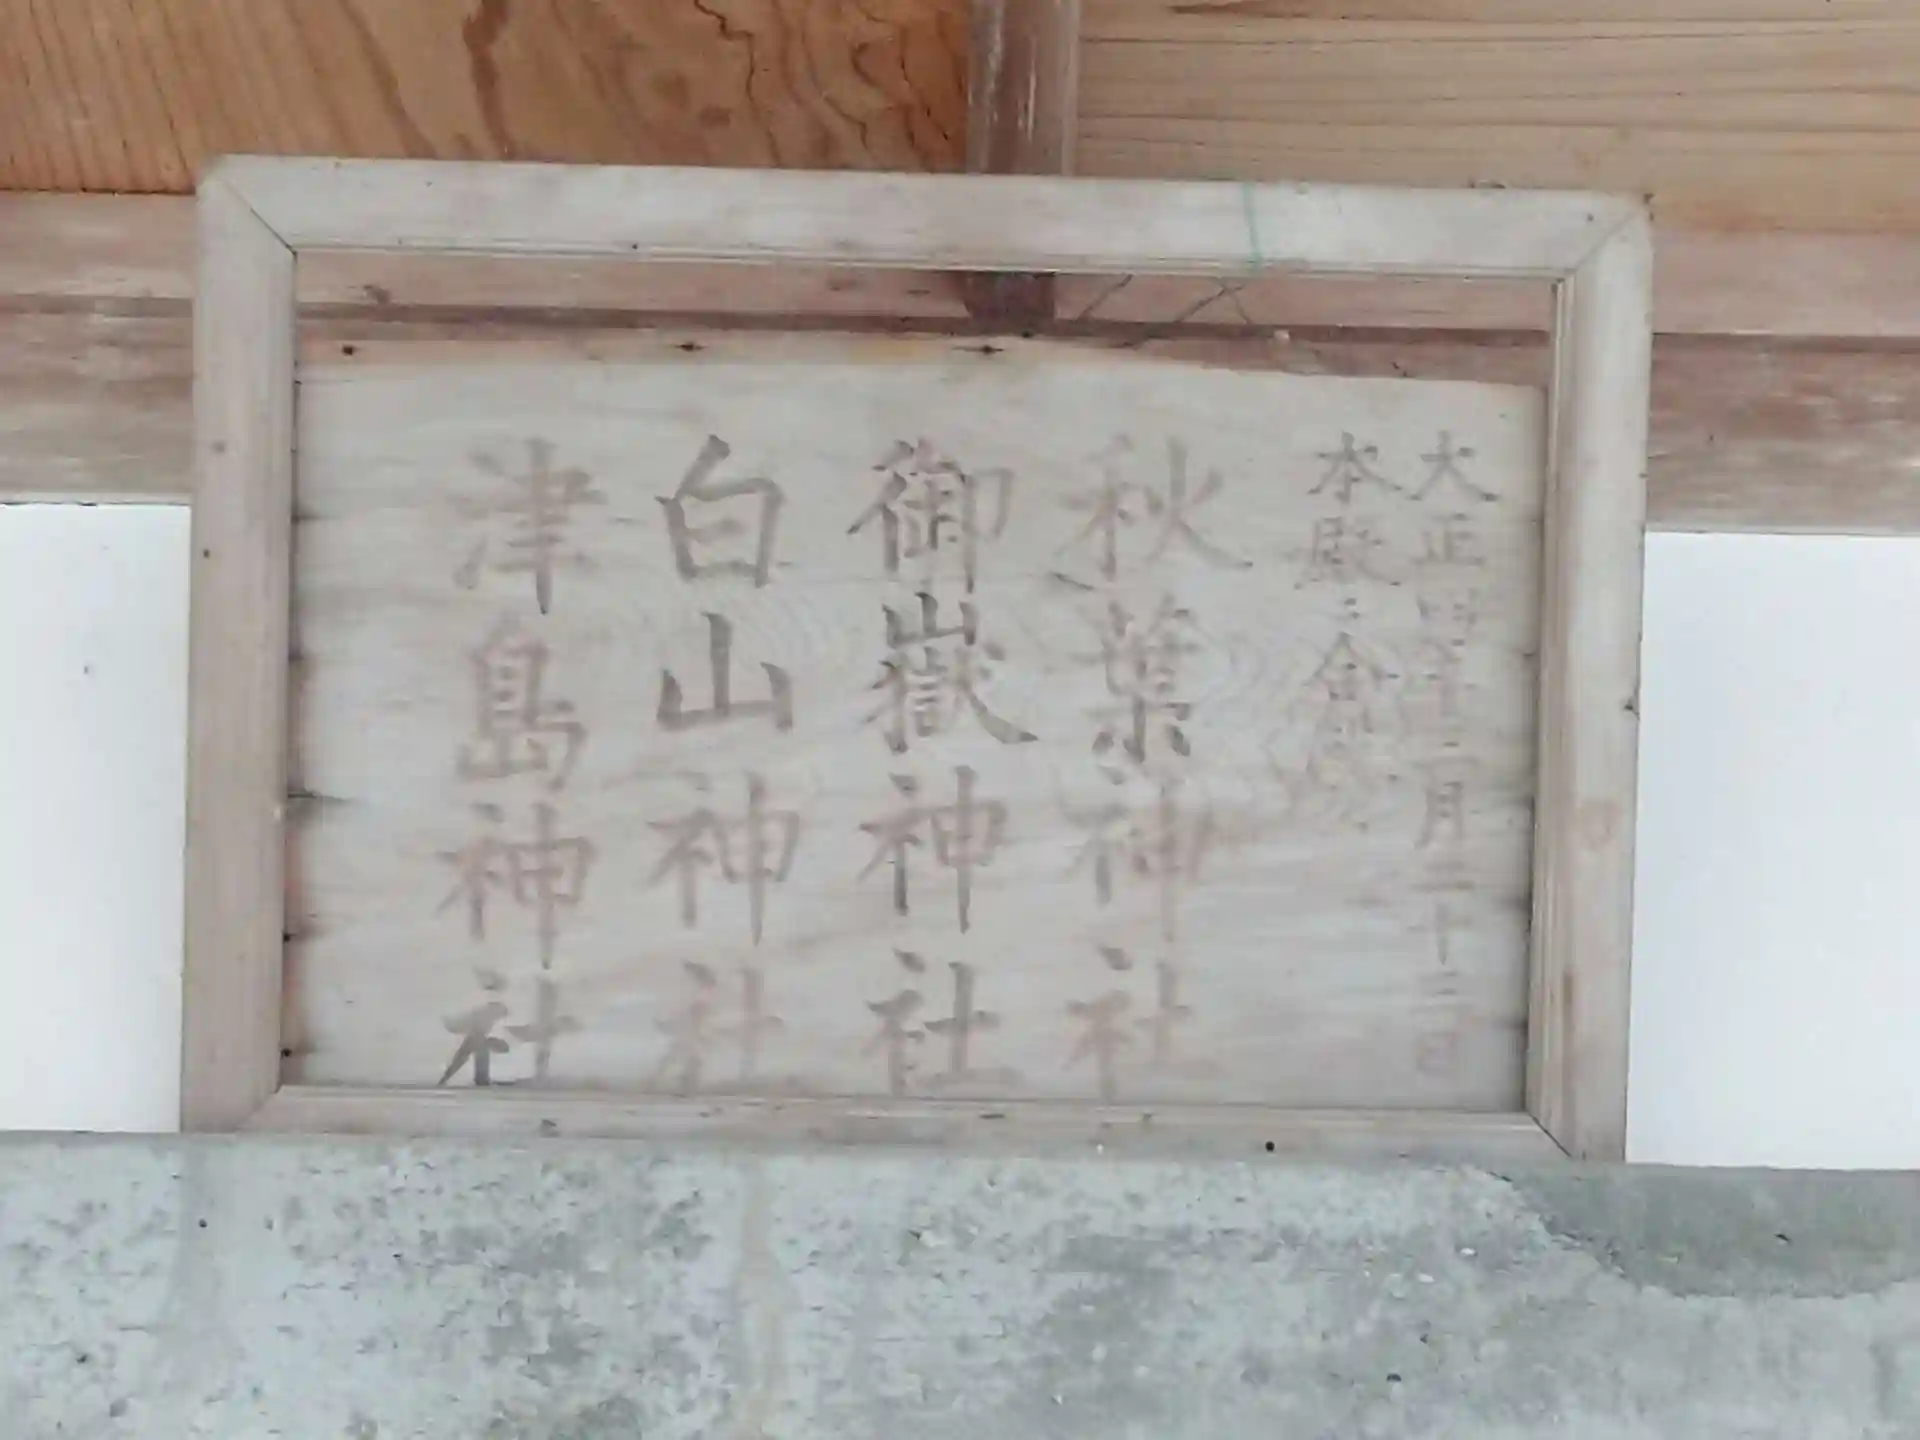 大正四年二月二十三日
本殿ニ合祀
秋葉神社
御嶽神社
白山神社
津島神社